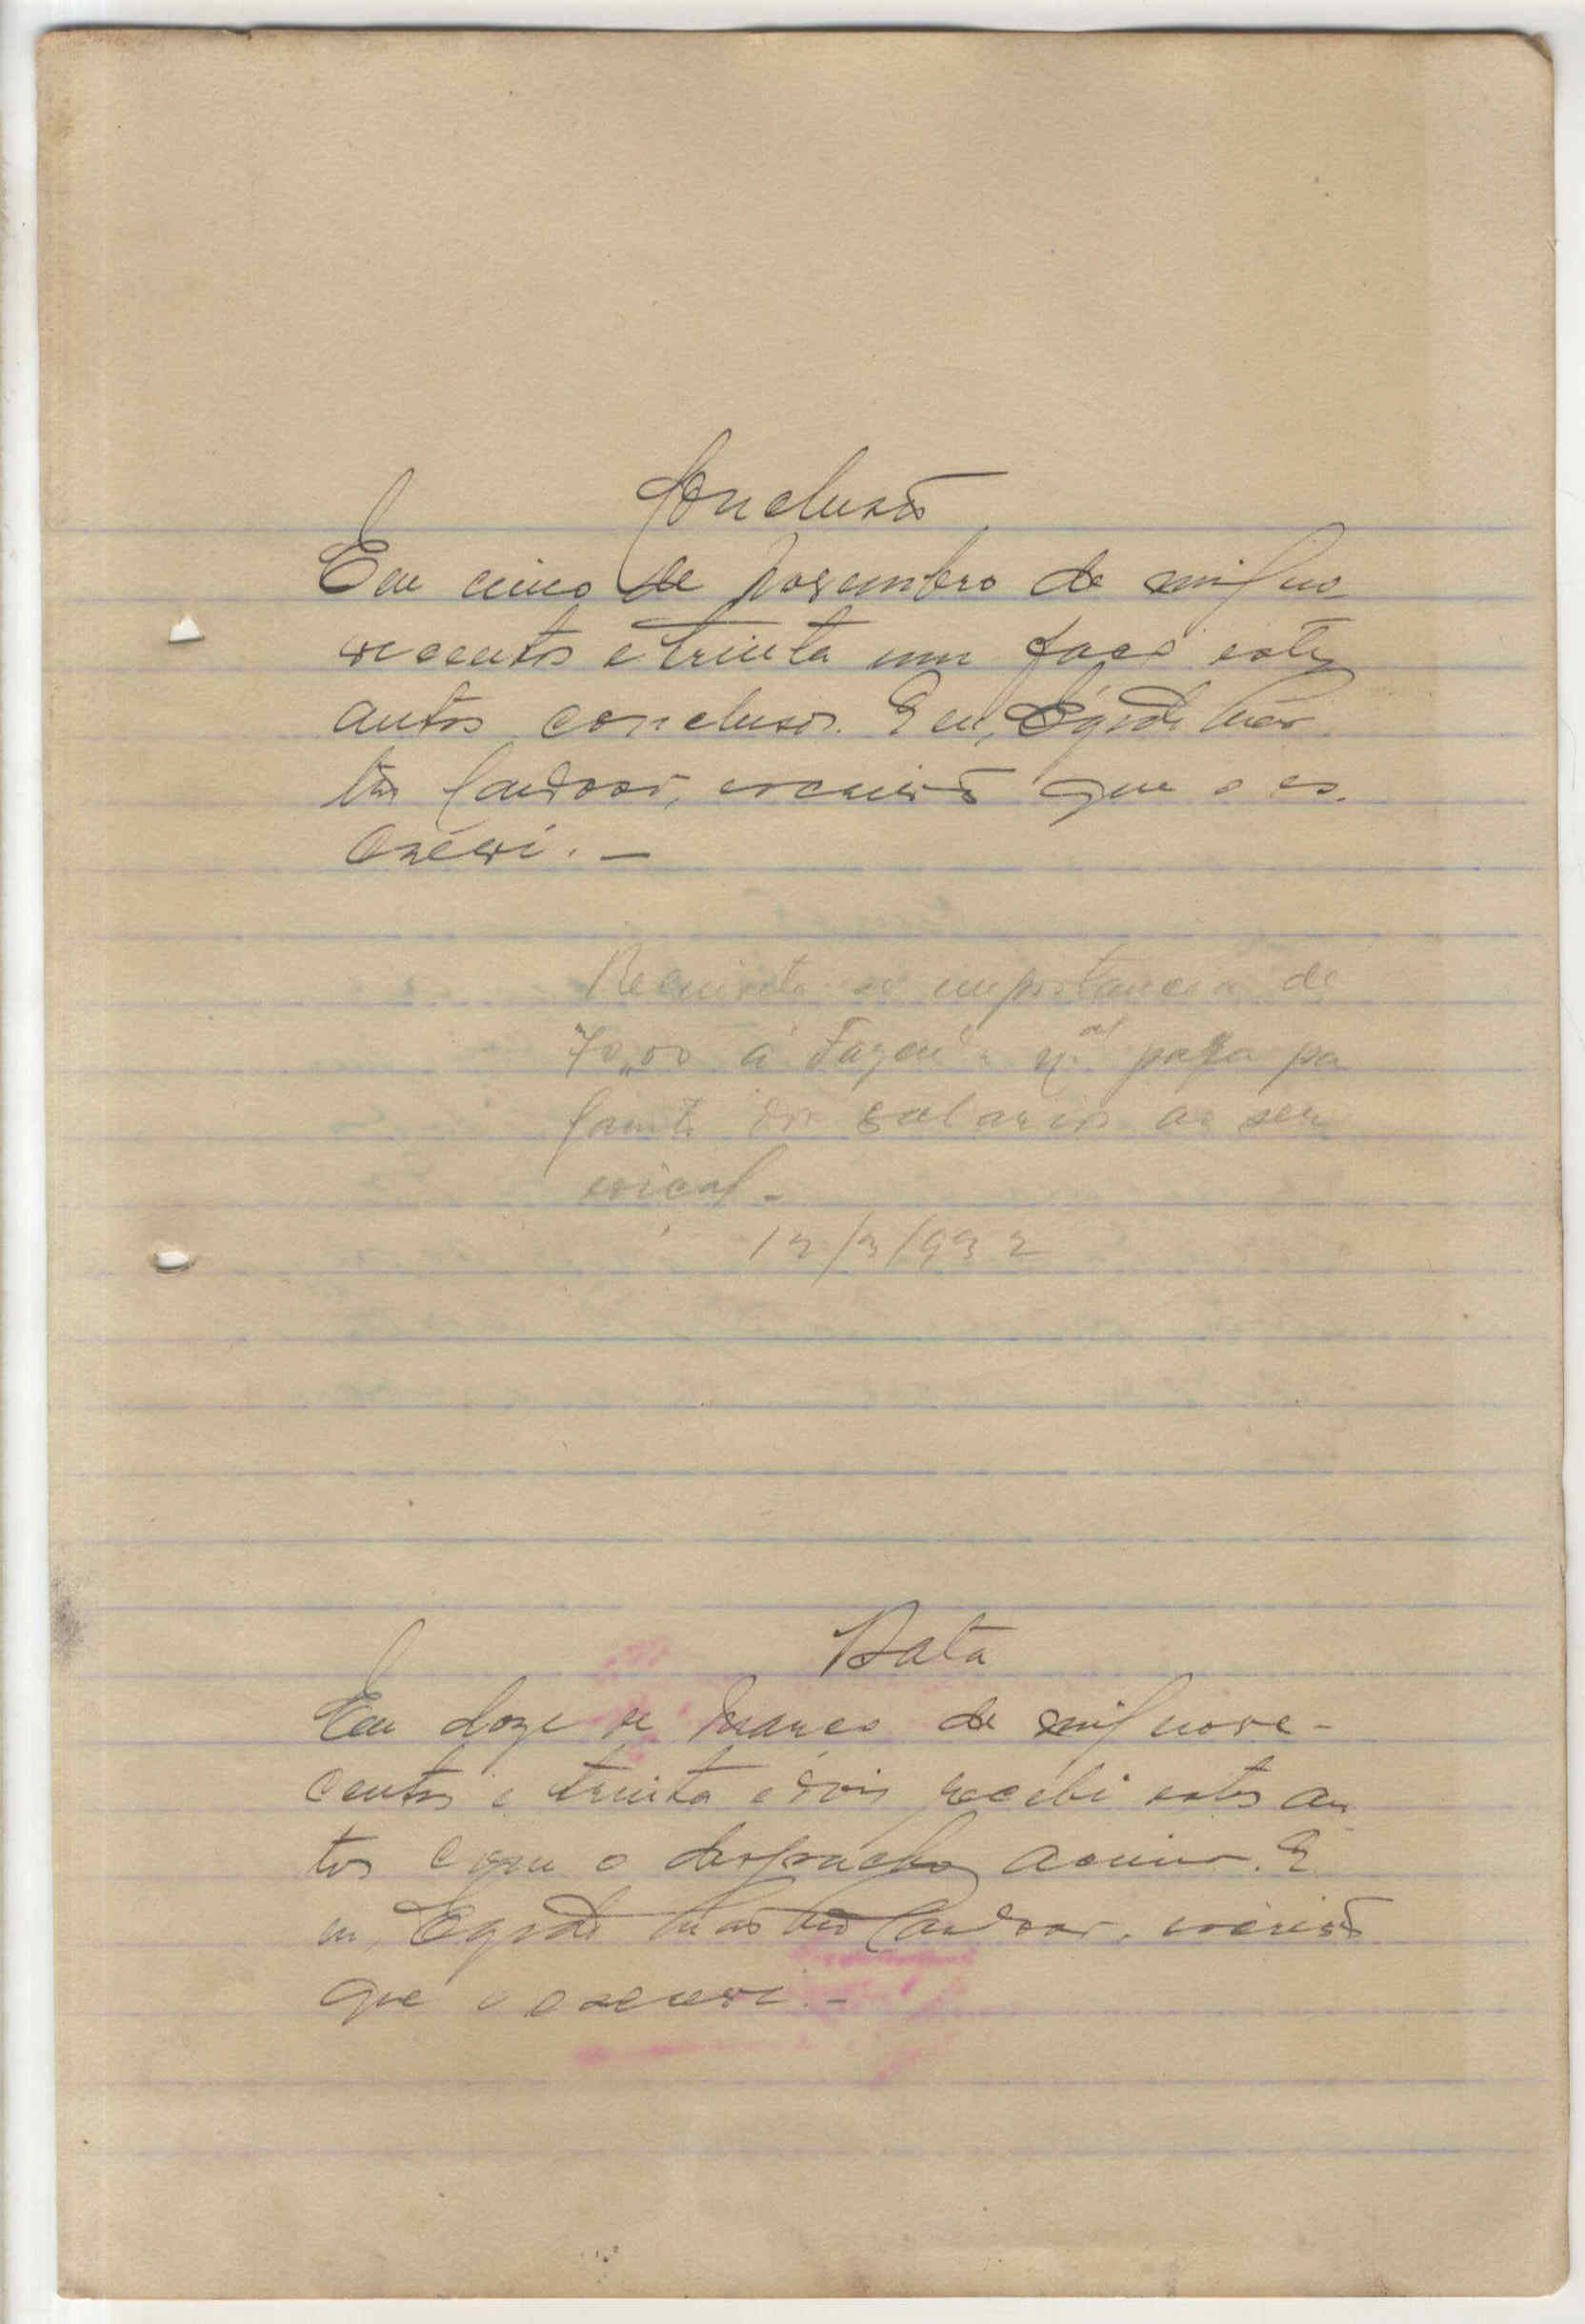 Conclusão
Em cinco de Novembro de mil no
vecentos e trinta um faço estes
autos conclusos. Eu, Egidi Mar
tins Cardoso, escrivão que o es.
crevi. —
Requisite se importancia de
70,00 á Fazenda para pa
gamto dos salarios ao ser
viçal -
12/3/932
Data
Em doze de Março de mil nove-
centos e trinta e dois recebi estes au
tos com o despacho acima. E
u, Egidi Martins Cardoso, escrivão
que o escrevi. -